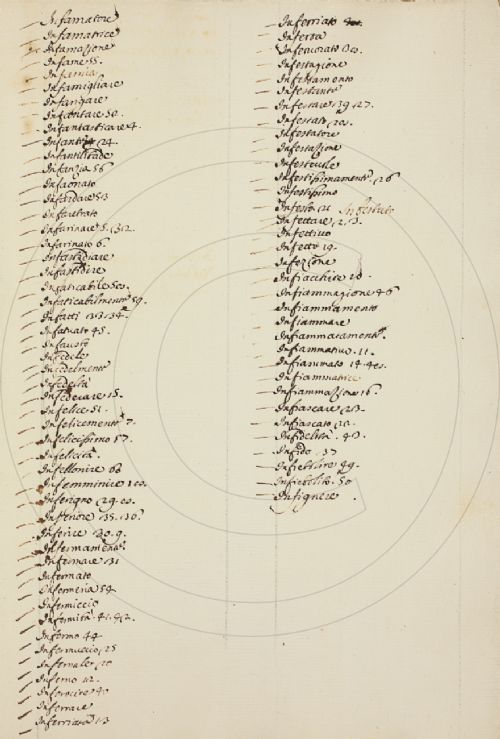 Infamatore
Infamatrice
Infamazione
Infame 15.
Infamia
Infamigliare
Infangare
Infantare 50.
Infantasticare 4.
Infante 24.
Infantilità
Infanzia 56
Infaonato
Infardare 53
Infarinare
Infarinato 6.
Infastidiare
Infastidire
Infaticabile
Infaticabilmente 59.
Infatti
Infatuato 45.
Infausto
Infedele
Infedelmente
Infedeltà
Infelice 51.
Infelicemente 7.
Infelicissimo 57.
Infelicità
Infellonire 66
Infemminire
Inferigno
Inferiore
Inferire 30. 9.
Infermamente
Infermare 131
Infermato
Infermeria 54
Infermiccio
Infermità
Infermo 44
Infermuccio 25
Infernale
Inferno 12.
Inferocire 40
Inferrare
Inferriata 13
Inferriato
Infertà
Infervorato
Infestagione
Infestamento
Infestante
Infestare 39. 27.
Infestato
Infestatore
Infestazione
Infestevole
Infestissimamente 26
Infestissimo
Infesto Infestato
Infettare
Infettivo
Infetto 19.
Infezione
Infiacchire
Infiammagione 46
Infiammamento
Infiammare
Infiammatamente
Infiammativo 11.
Infiammato
Infiammatrice
Infiammazione 16.
Infiascare
Infiascato
Infidelità 43.
Infido 37
Infiebolire 99.
Infiebolito 50
Infignere